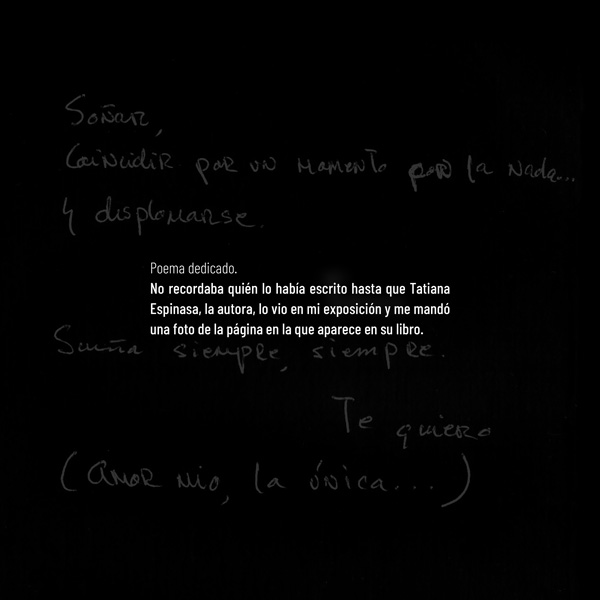 Soñar,
Coincidir por un momento por la nada...
y desplomarse.
Poema dedicado.
No recordaba quién lo había escrito hasta que Tatiana
Espinasa, la autora, lo vio en mi exposición y me mandó
una foto de la página en la que aparece en su libro.
Sueña siempre, siempre.
Te quiero
(Amor mio, la única...)